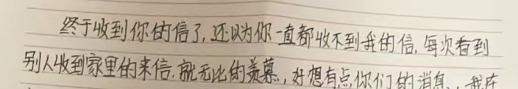 终于收到你的信了,还以为你一直都收不到我的信,每次看到
别人收到家里的来信.就无比的羡慕,好想有点你们的消息,我在